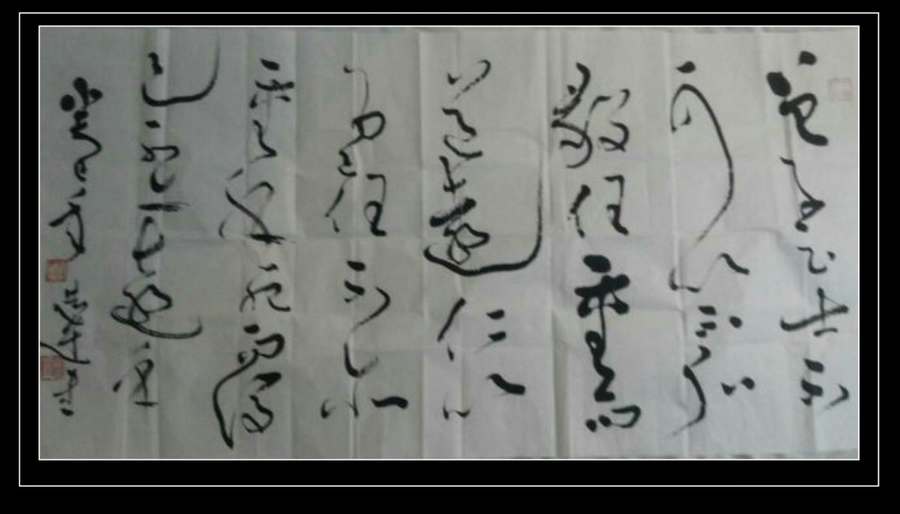 曾子曰士不
可以不弘
毅任重而
道遠仁以
為己任不亦
重乎死而後
已不亦遠乎